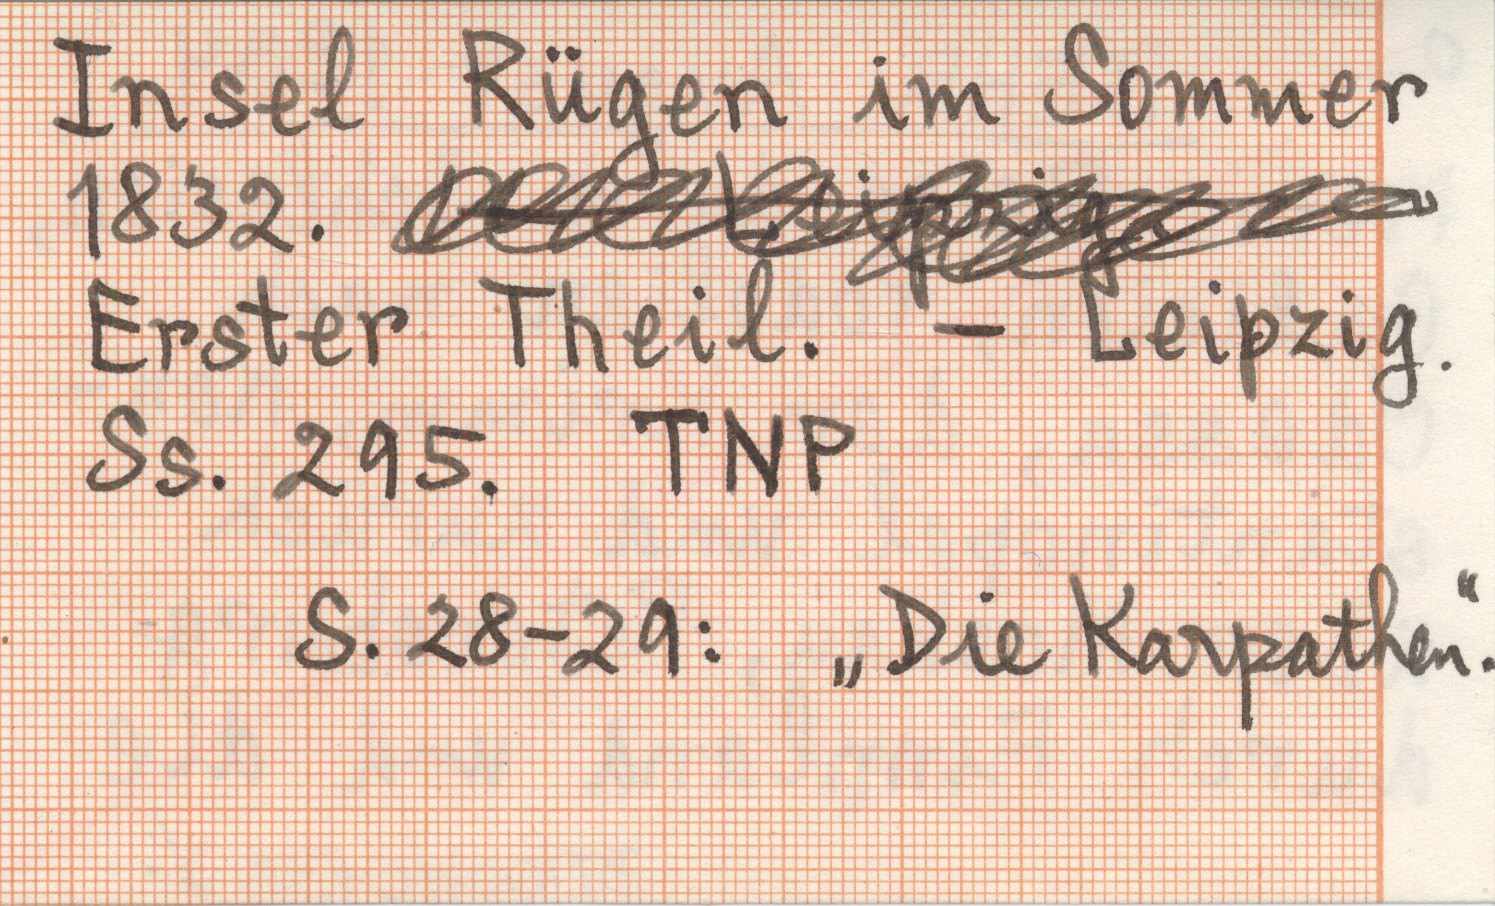 Insel Rügen im Sommer
1832.
Erster Theil. – Leipzig.
Ss. 295. TNP
S. 28–29: „Die Karpathen“.